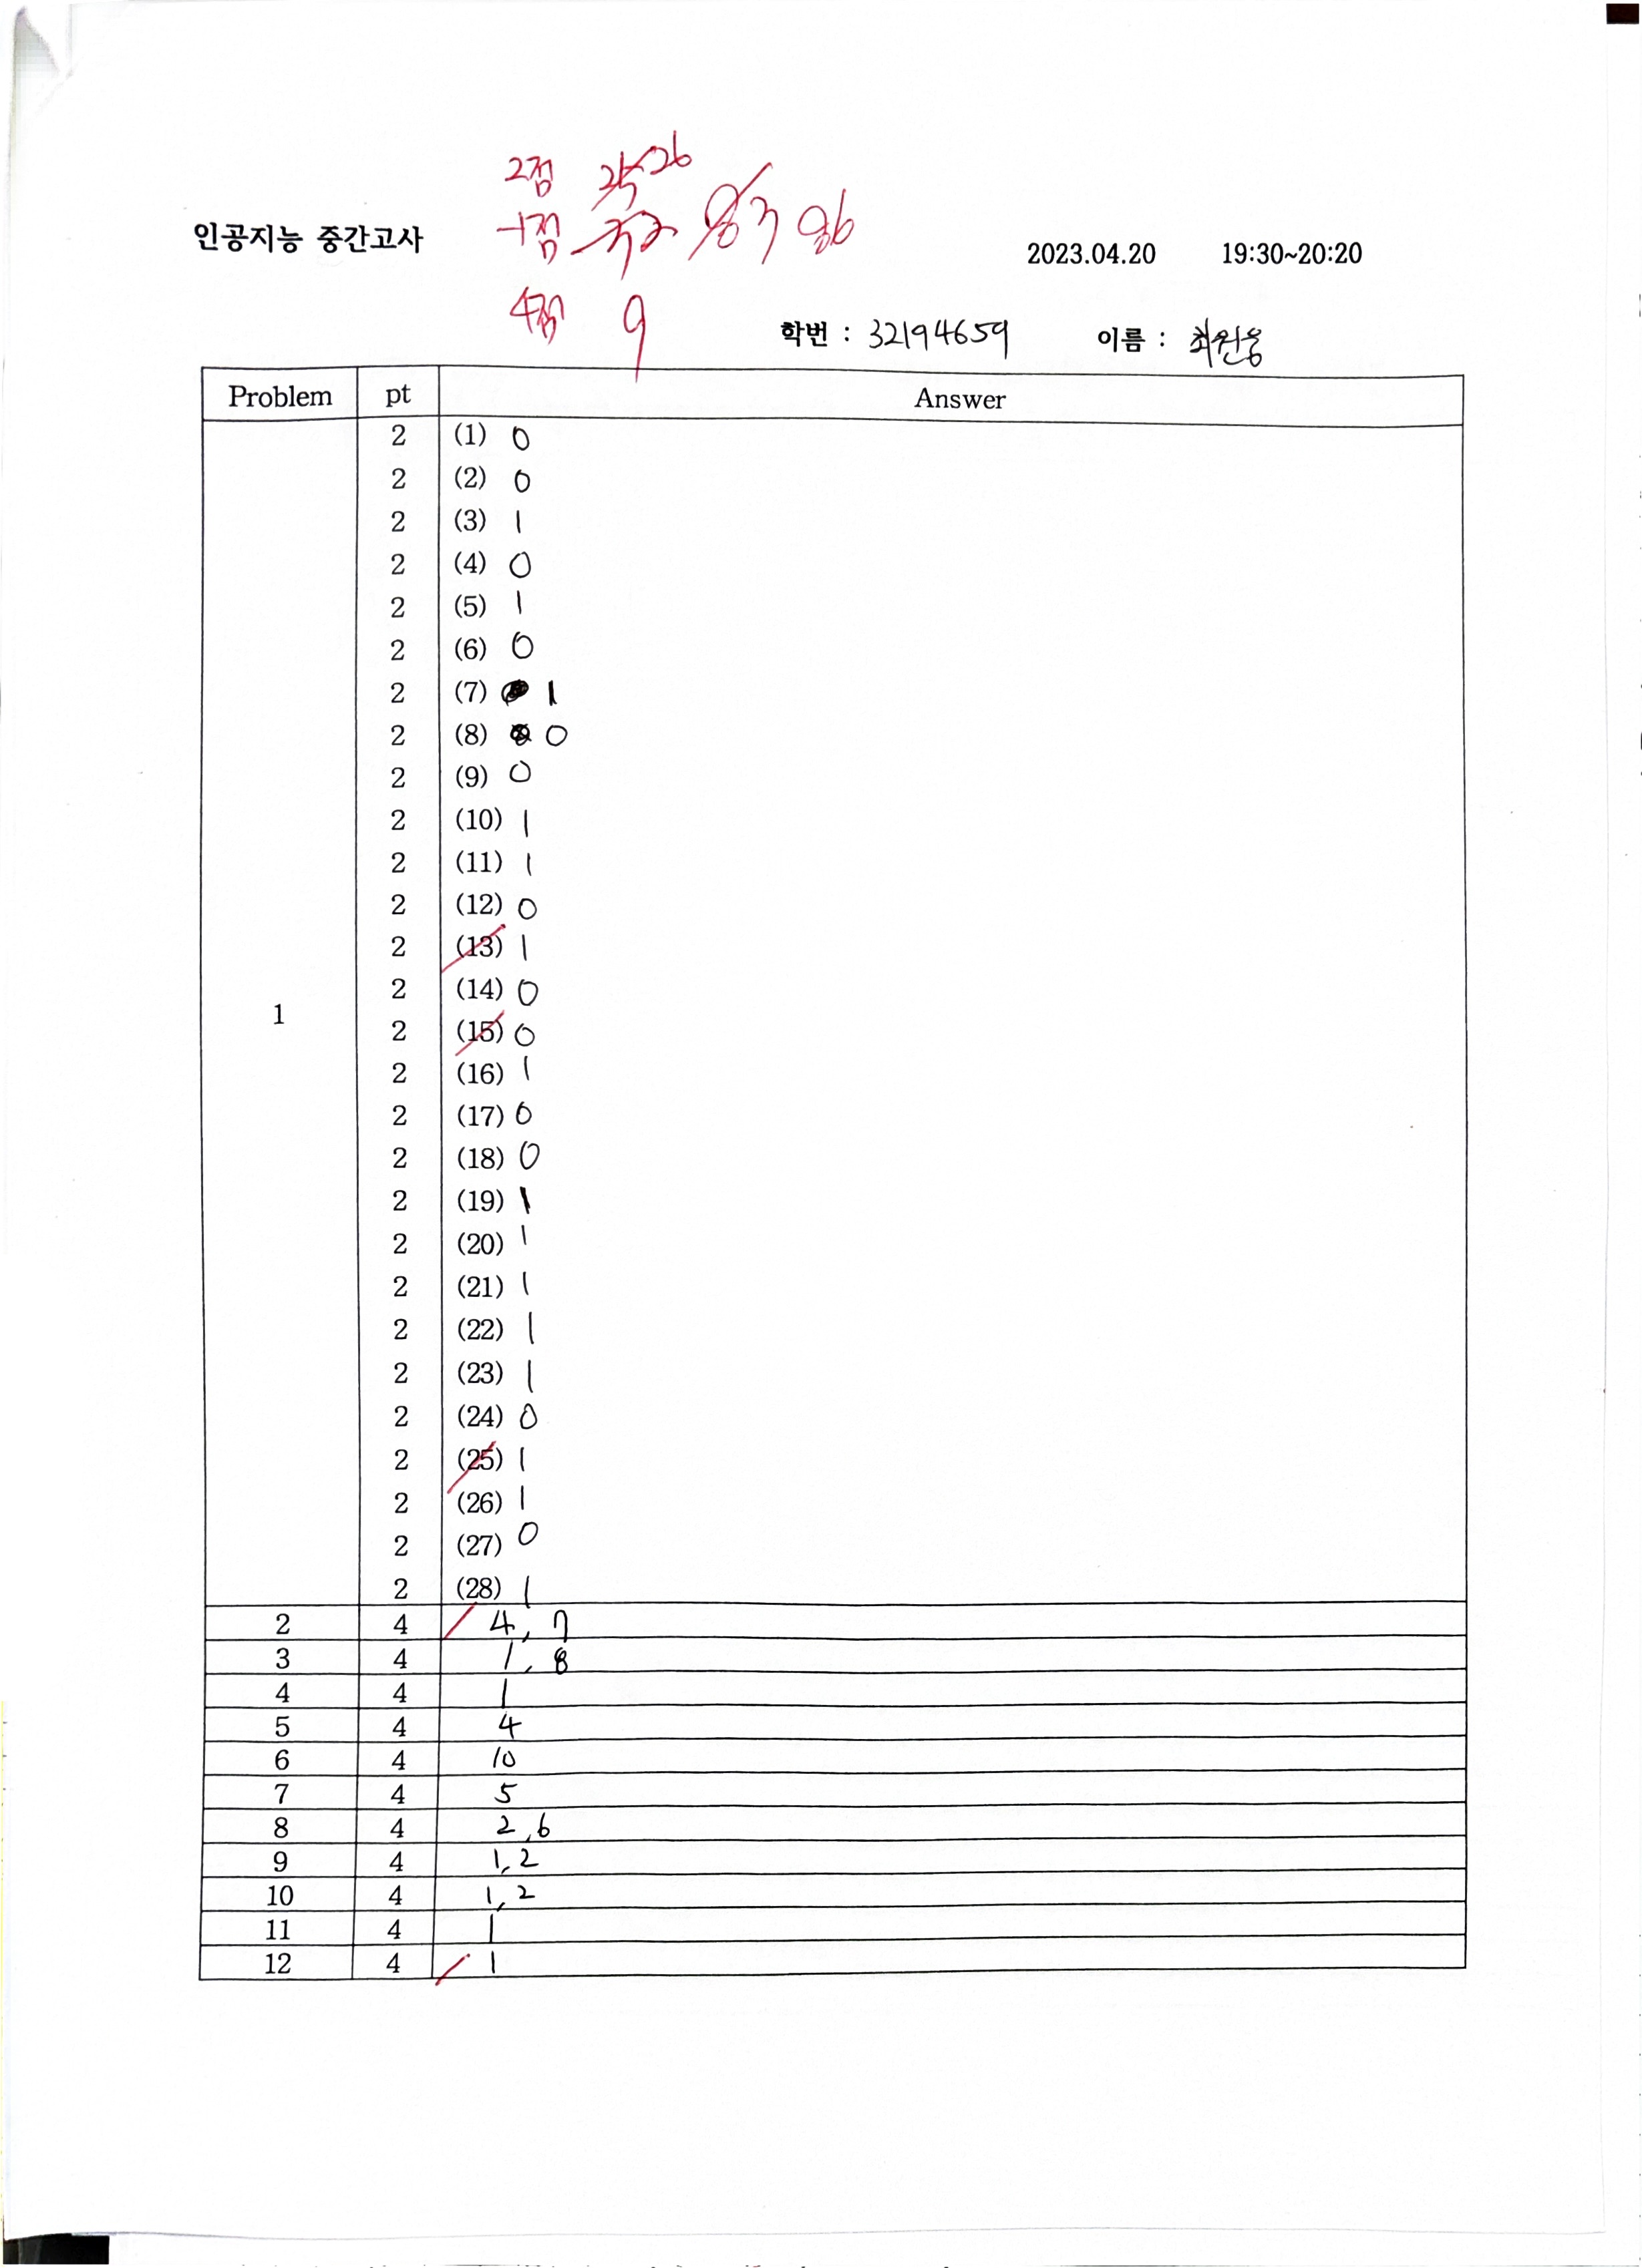 2점 26
인공지능 중간고사
2023.04.20 19:30~20:20
4점 9
학번 : 32194659 이름 : 최원용
Problem pt Answer
1
2 (1) 0
2 (2) 0
2 (3) 1
2 (4) 0
2 (5) 1
2 (6) 0
2 (7) 1
2 (8) 0
2 (9) 0
2 (10) 1
2 (11) 1
2 (12) 0
2 (13) 1
2 (14) 0
2 (15) 0
2 (16) 1
2 (17) 0
2 (18) 0
2 (19) 1
2 (20) 1
2 (21) 1
2 (22) 1
2 (23) 1
2 (24) 0
2 (25) 1
2 (26) 1
2 (27) 0
2 (28) 1
2 4 4, 7
3 4 1, 8
4 4 1
5 4 4
6 4 10
7 4 5
8 4 2, 6
9 4 1, 2
10 4 1, 2
11 4 1
12 4 1